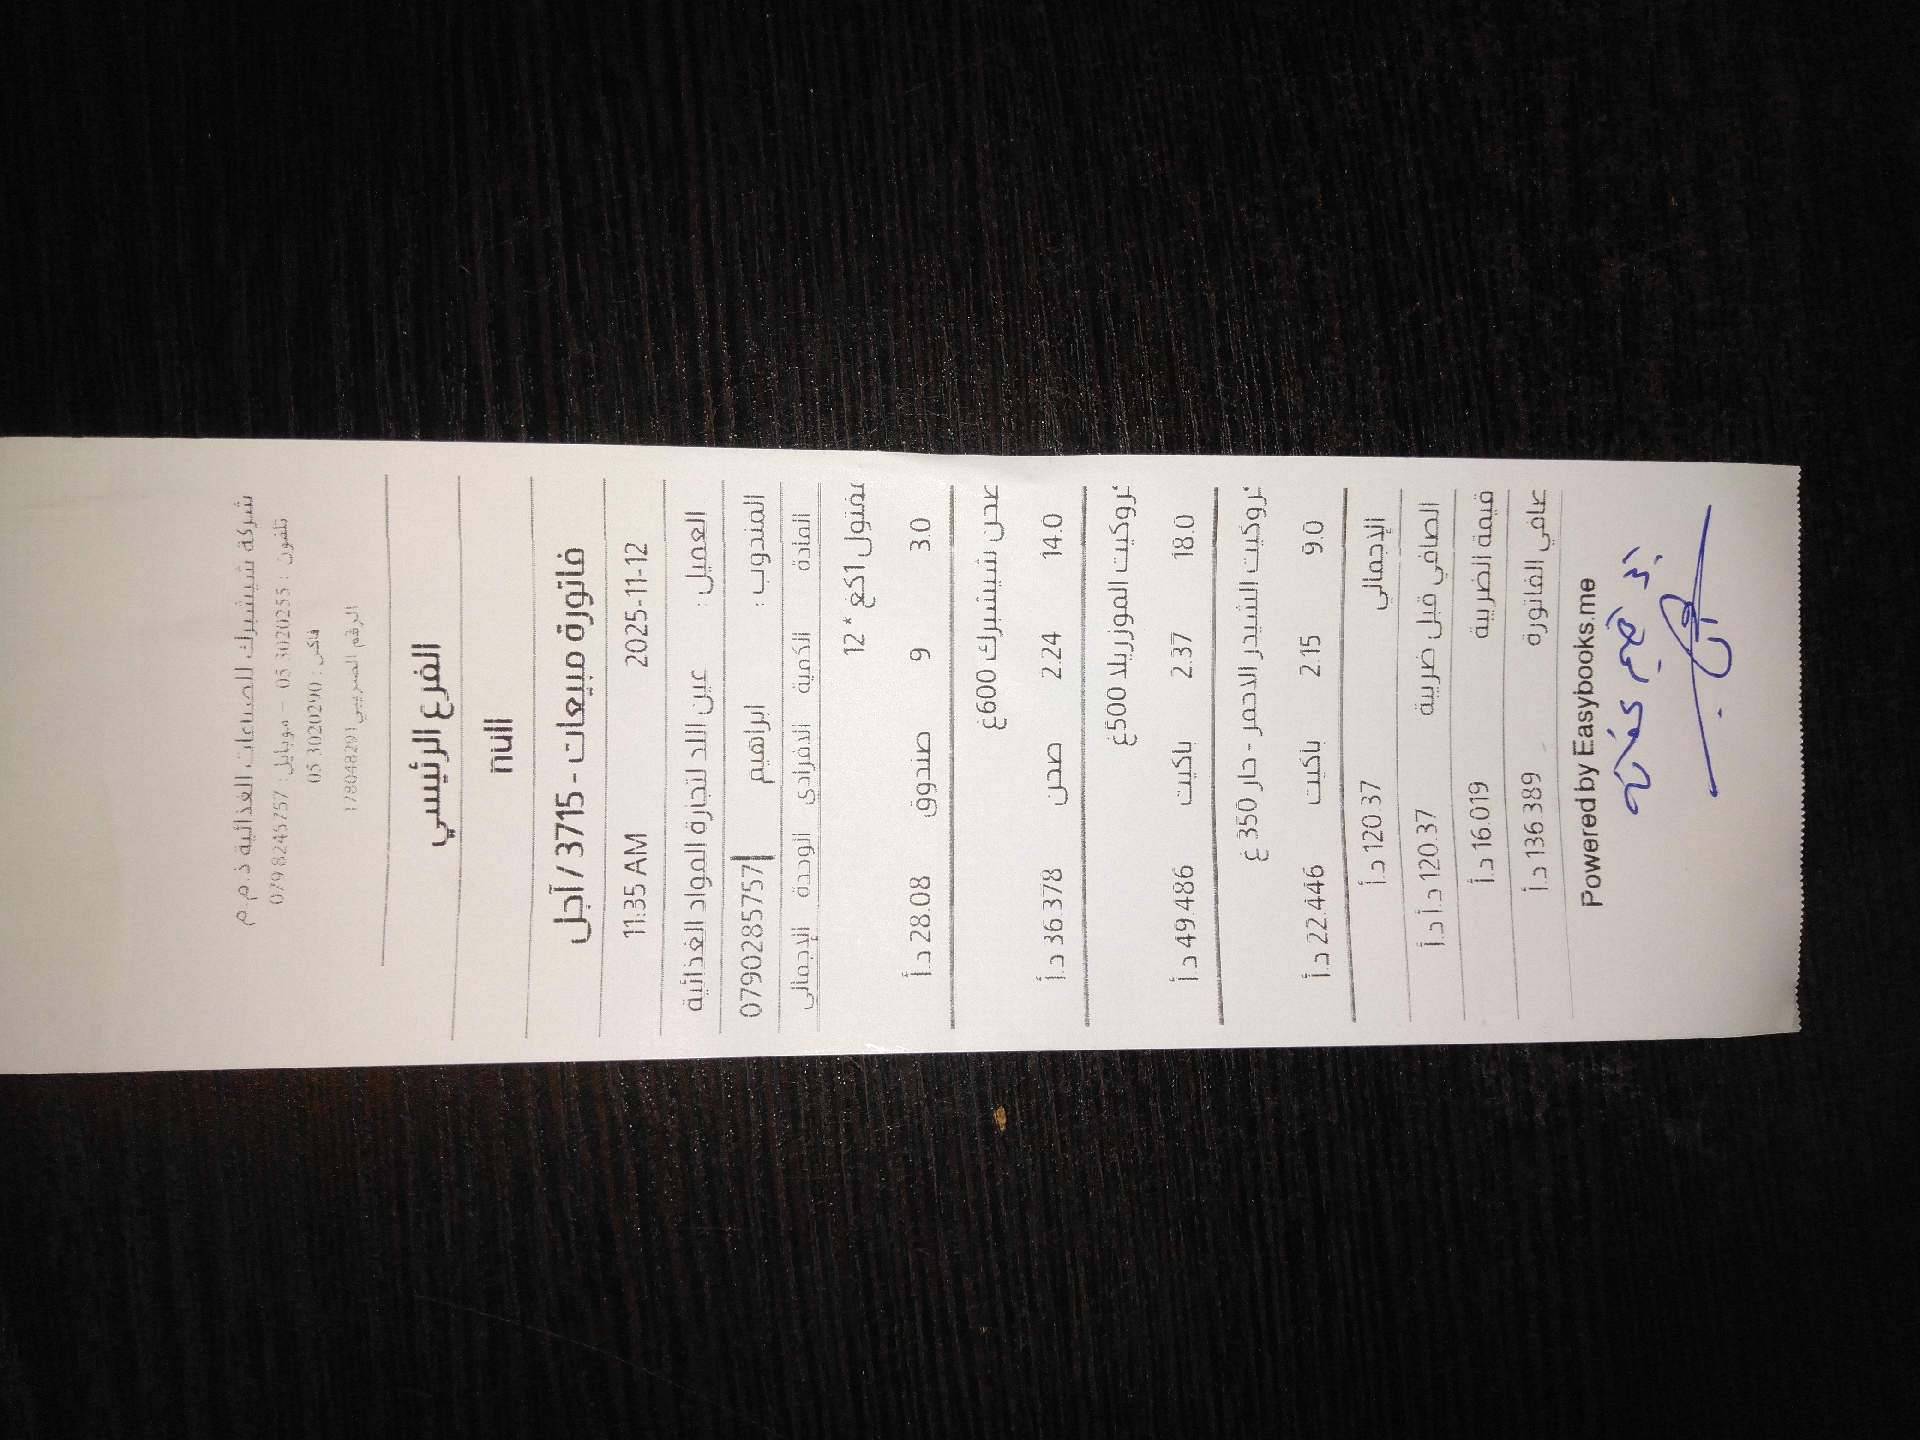 شركة شيشبرك للصناعات الغذائية ذ.م.م
تلفون : 05 3020255 – موبايل : 079 8245757
فاكس : 05 3020290
الرقم الضريبي 17804829
الفرع الرئيسي
null
فاتورة مبيعات - 3715 / آجل
2025-11-12 11:35 AM
العميل : عين اللد لتجارة المواد الغذائية
المندوب : ابراهيم 0790285757
المادة الكمية الافرادى الوحدة الإجمالى
12 * مفتول 1كغ
3.0 9 صندوق 28.08 د.أ
صحن شيشبرك 600غ
14.0 2.24 صحن 36.378 د.أ
كروكيت الموزريلا 500غ
18.0 2.37 باكيت 49.486 د.أ
كروكيت الشيدر الاحمر - حار 350 غ
9.0 2.15 باكيت 22.446 د.أ
الإجمالي 120.37 د.أ
الصافي قبل ضريبة 120.37 د.أ د.أ
قيمة الضريبة 16.019 د.أ
صافي الفاتورة 136.389 د.أ
Powered by Easybooks.me